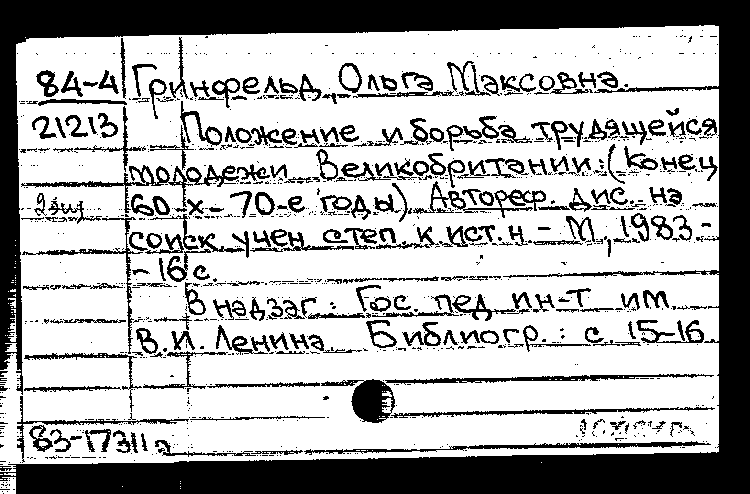 84-4 Гринфельд, Ольга Максовна.
21213 Положение и борьба трудящейся
молодежи Великобритании: (Конец
2 экз 60-х - 70-е годы). Автореф. дис. на
соиск. учен. степ. к. ист. н - М, 1983. -
- 16 с.
В надзаг.: Гос. пед. ин-т им.
В.И. Ленина. Библиогр.: с. 15-16.
83-17311а